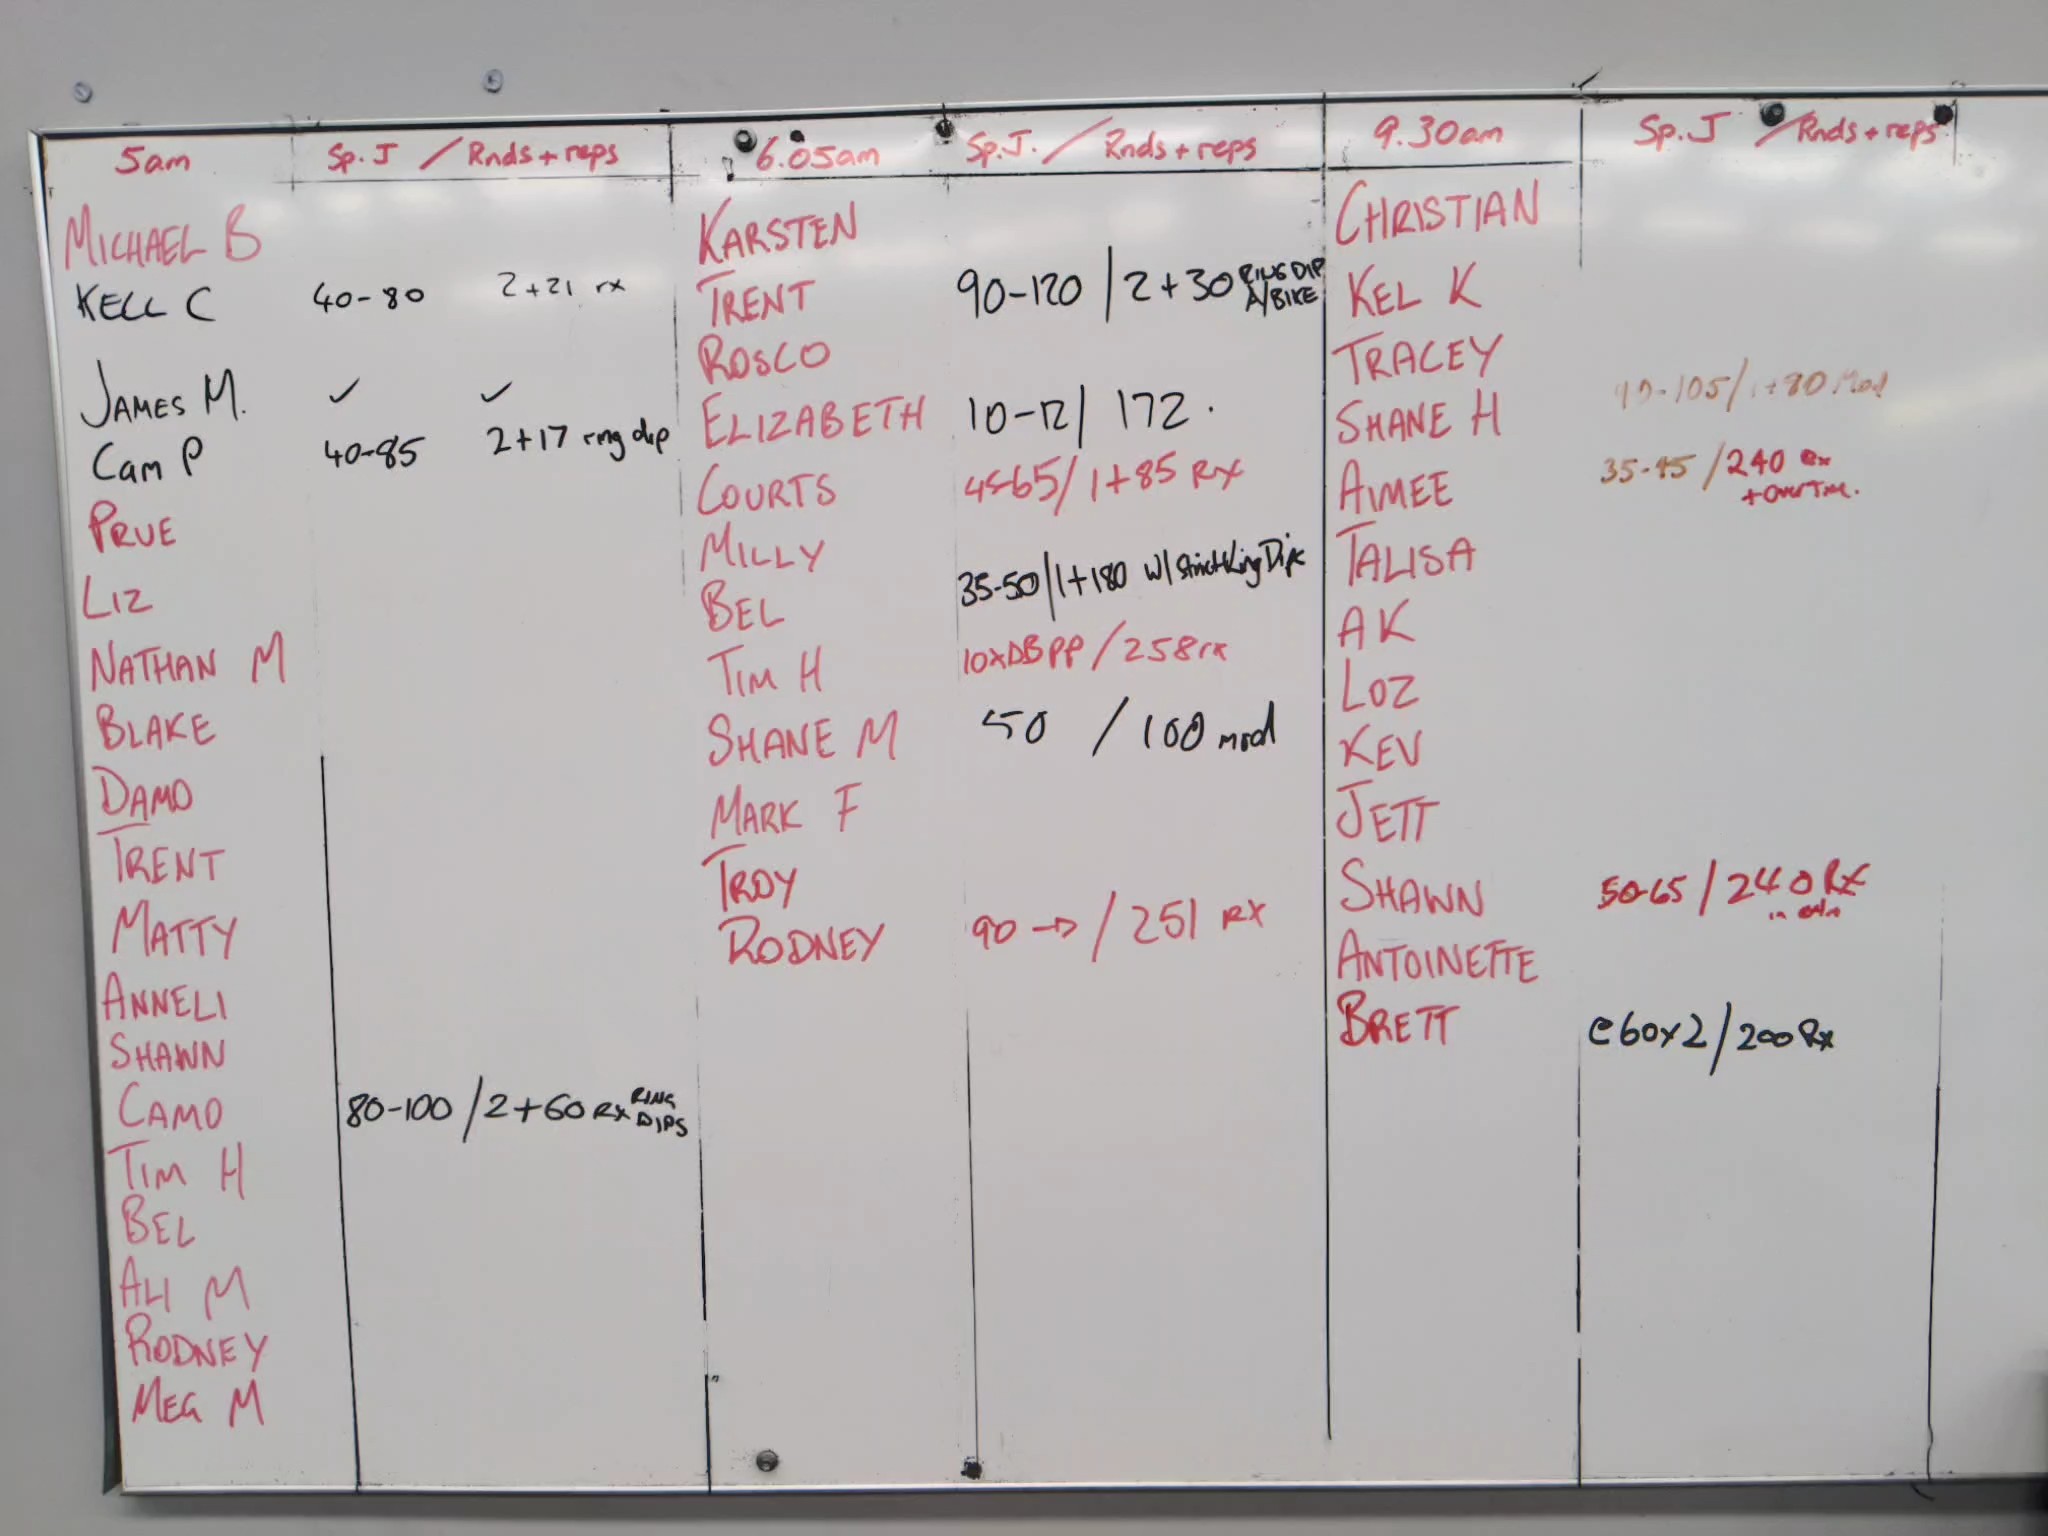 5am Sp.J / Rnds + reps
MICHAEL B
KELL C 40-80 2+21 rx
JAMES M. ✓ ✓
CAM P 40-85 2+17 ring dip
PRUE
LIZ
NATHAN M
BLAKE
DAMO
TRENT
MATTY
ANNELI
SHAWN
CAMO 80-100 / 2+60 RX RING
DIPS
TIM H
BEL
ALI M
RODNEY
MEG M
6.05am Sp.J. / Rnds + reps
KARSTEN
TRENT 90-120 / 2+30 RING DIP
A/BIKE
ROSCO
ELIZABETH 10-12 / 172.
COURTS 45-65 / 1+85 RX
MILLY
BEL 35-50 / 1+180 w/ Strict Ring Dips
TIM H 10xDB PP / 258 rx
SHANE M 50 / 100 mod
MARK F
TROY
RODNEY 90 → / 251 RX
9.30am Sp.J / Rnds + reps
CHRISTIAN
KEL K
TRACEY
SHANE H 90-105 / 1+80 Mod
AIMEE 35-45 / 240 Rx
+ Over Time.
TALISA
AK
LOZ
KEV
JETT
SHAWN 50-65 / 240 RX
ANTOINETTE
BRETT @60x2 / 200 Rx